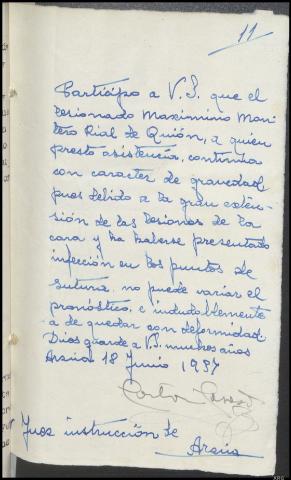 11
Participo a V.S. que el
lesionado Maximino Mon
tero Rial de Quión, a quien
presto asistencia, continua
con caracter de gravedad
pues debido a la gran exten-
sión de las lesiones de la
cara y ha haberse presentado
infección en los puntos de
sutura, no puede variar el
pronóstico, e indudablemente
a de quedar con deformidad.
Dios guarde a V.S. muchos años
Arzúa 18 Junio 1937
Juez instrucción de
Arzúa